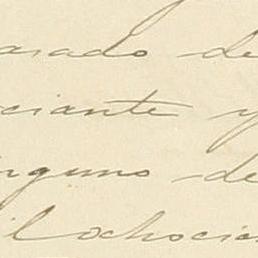 asado de
ciante y
inguno de
il ochocien